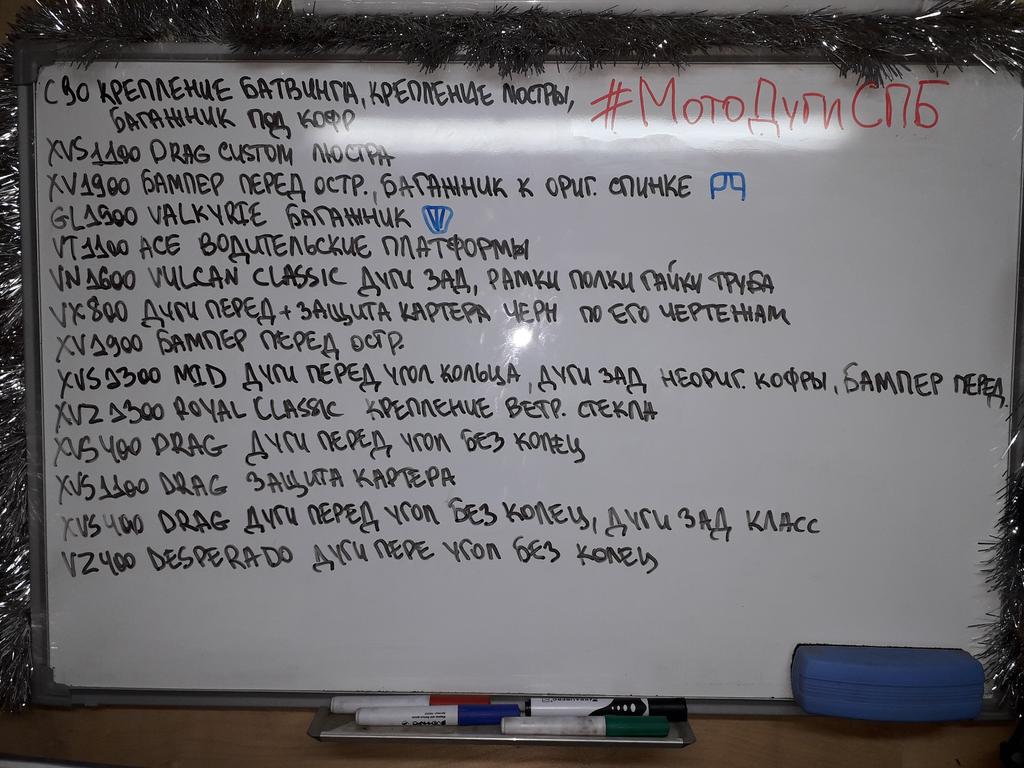 C90 КРЕПЛЕНИЕ БАТВИНГА, КРЕПЛЕНИЕ ЛЮСТРЫ,
БАГАЖНИК ПОД КОФР
#МотоДугиСПБ
XVS1100 DRAG CUSTOM ЛЮСТРА
XV1900 БАМПЕР ПЕРЕД ОСТР., БАГАЖНИК К ОРИГ. СПИНКЕ
GL1500 VALKYRIE БАГАЖНИК
VT1100 ACE ВОДИТЕЛЬСКИЕ ПЛАТФОРМЫ
VN1600 VULCAN CLASSIC ДУГИ ЗАД, РАМКИ ПОЛКИ ГАЙКИ ТРУБА
VX800 ДУГИ ПЕРЕД + ЗАЩИТА КАРТЕРА ЧЕРН ПО ЕГО ЧЕРТЕЖАМ
XV1900 БАМПЕР ПЕРЕД ОСТР.
XVS1300 MID ДУГИ ПЕРЕД УГОЛ КОЛЬЦА, ДУГИ ЗАД НЕОРИГ. КОФРЫ, БАМПЕР ПЕРЕД.
XVZ1300 ROYAL CLASSIC КРЕПЛЕНИЕ ВЕТР. СТЕКЛА
XVS400 DRAG ДУГИ ПЕРЕД УГОЛ БЕЗ КОЛЕЦ
XVS1100 DRAG ЗАЩИТА КАРТЕРА
XVS400 DRAG ДУГИ ПЕРЕД УГОЛ БЕЗ КОЛЕЦ, ДУГИ ЗАД КЛАСС
VZ400 DESPERADO ДУГИ ПЕРЕ УГОЛ БЕЗ КОЛЕЦ